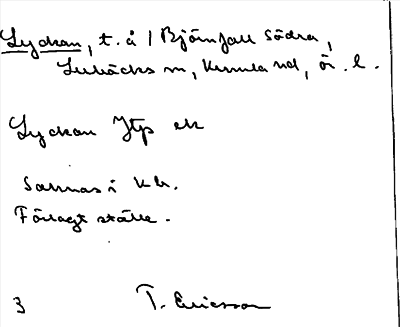 Lyckan, t. å 1 Björnfall Södra,
Lerbäcks sn, Kumla hd, ör. l.
Lyckan Htp ek
Saknas i kb.
Förlagt ställe.
3 T. Ericsson